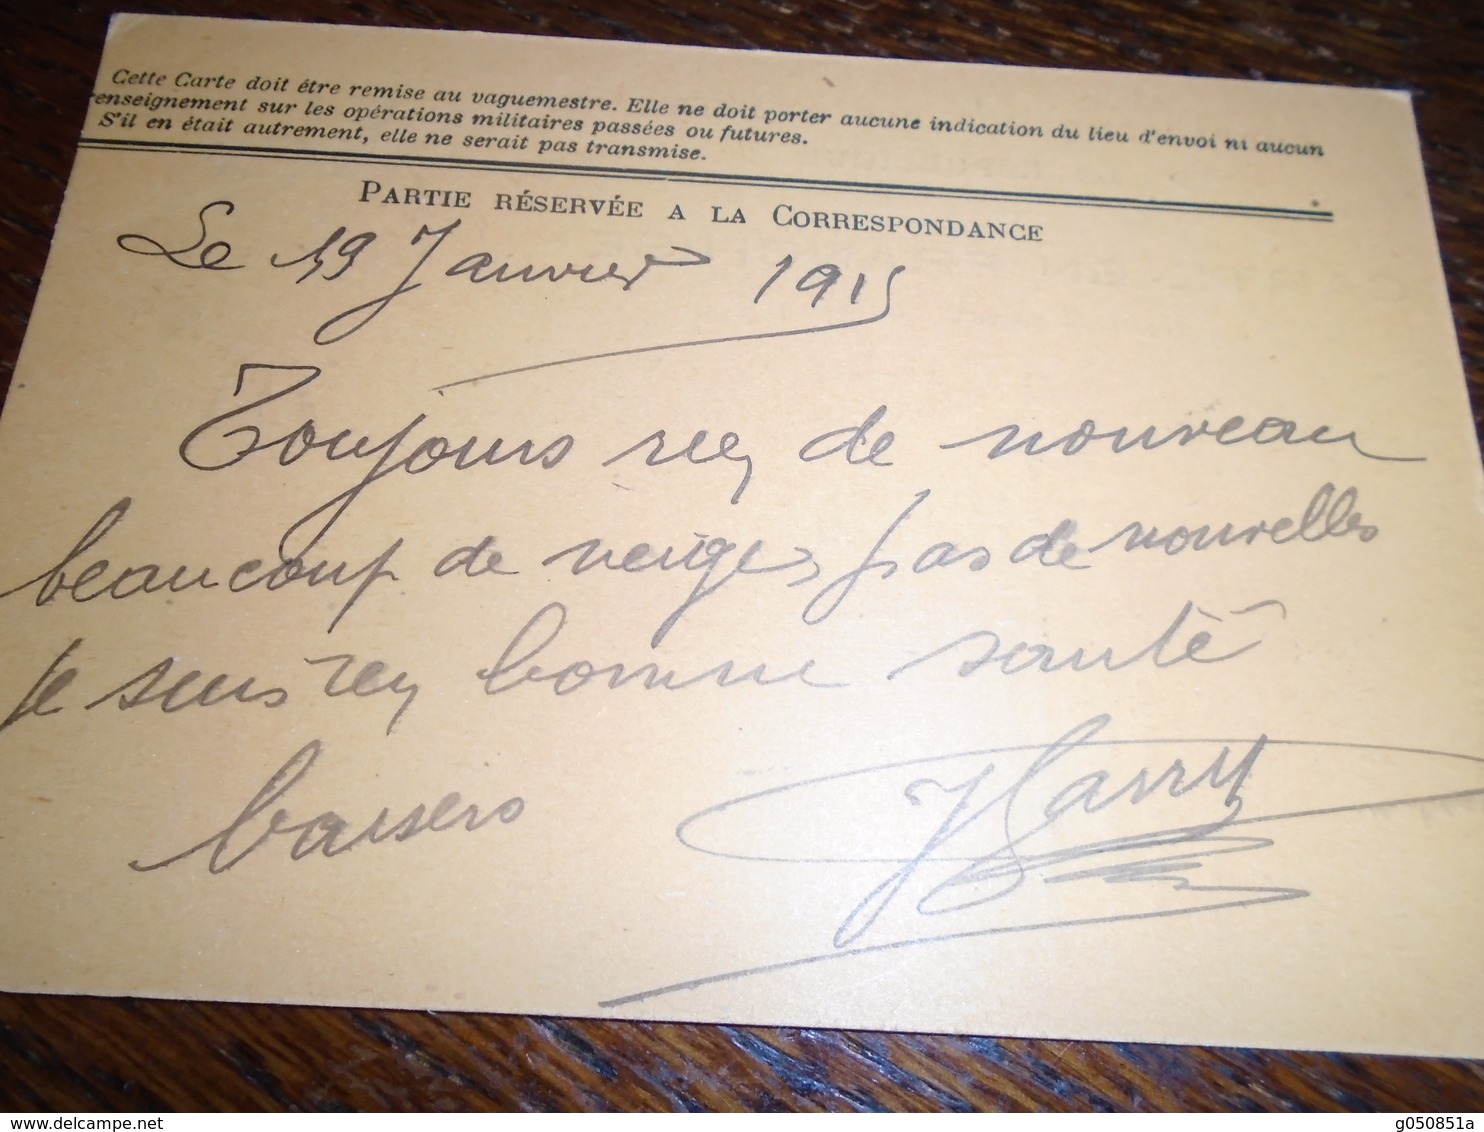 Cette Carte doit être remise au vaguemestre. Elle ne doit porter aucune indication du lieu d'envoi ni aucun
renseignement sur les opérations militaires passées ou futures.
S'il en était autrement, elle ne serait pas transmise.
PARTIE RÉSERVÉE A LA CORRESPONDANCE
Le 19 Janvier 1915
Toujours rien de nouveau
beaucoup de neige, pas de nouvelles
je suis en bonne santé
baisers Harry
delcampe.net
g050851a